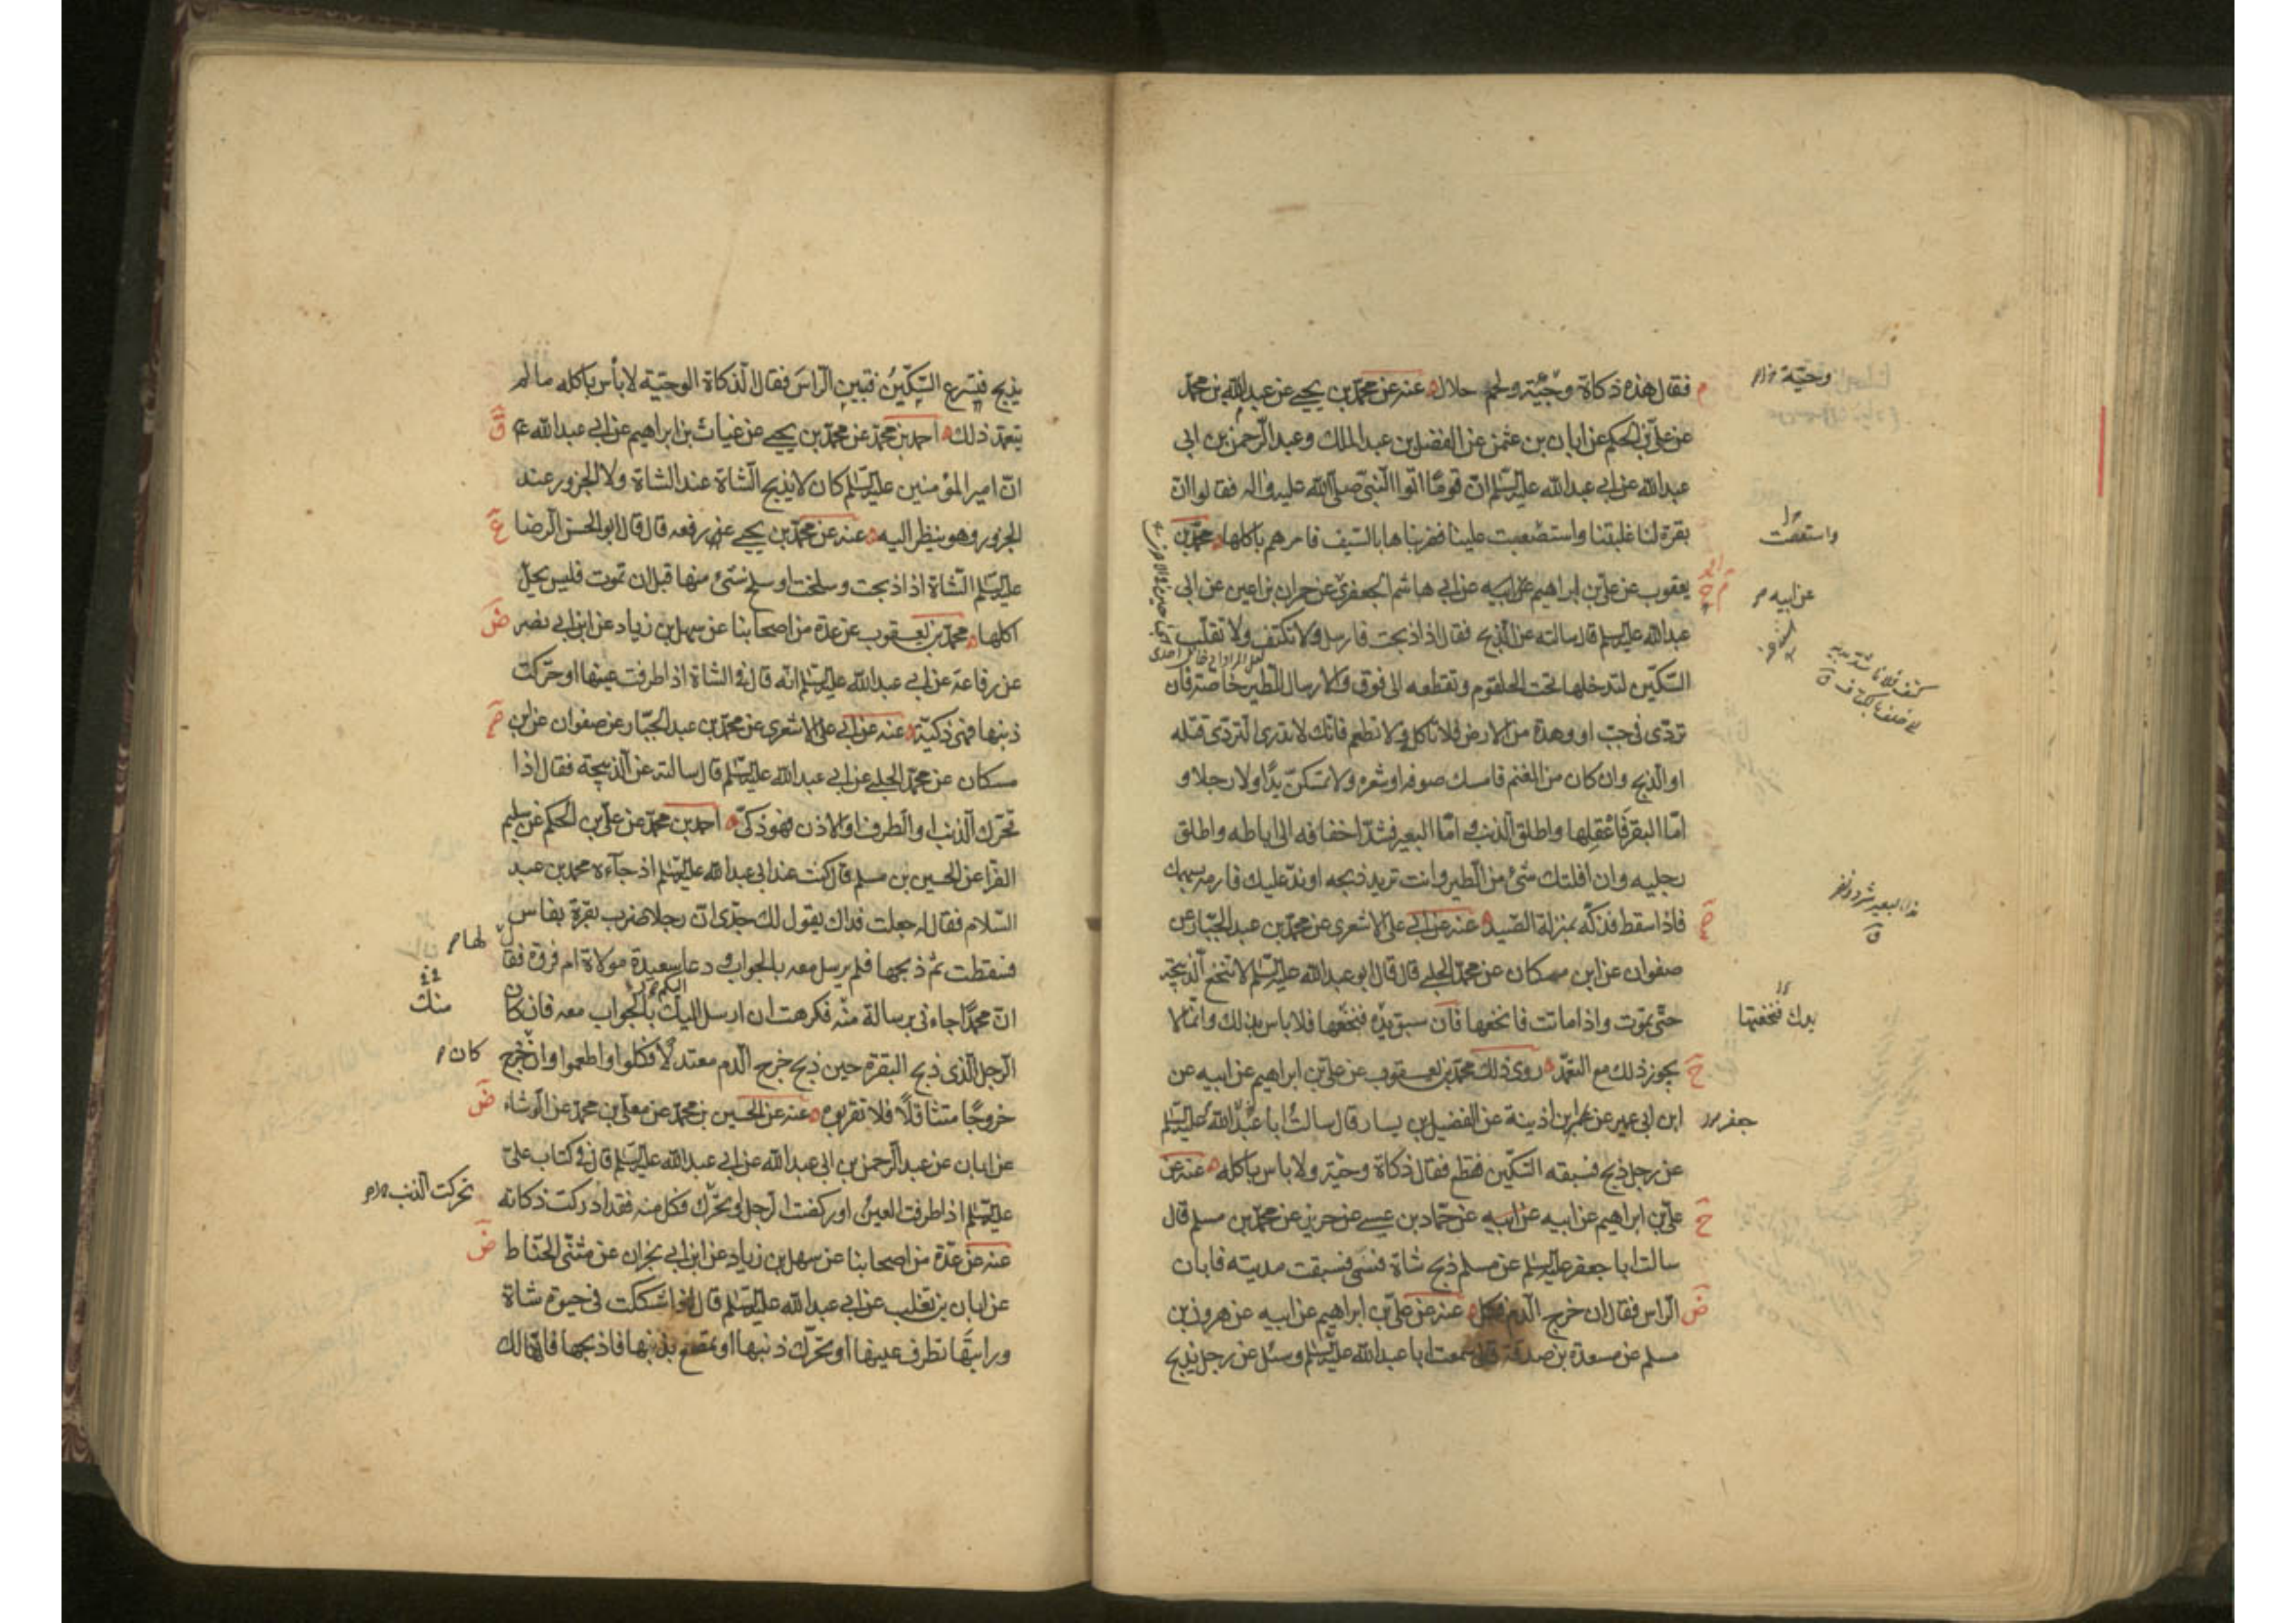 فقال هذه ذكاة وحيّة ولحم حلال عنه عن محمّد بن يحيى عن عبد الله بن محمّد
عن علي بن الحكم عن ابان بن عثمن عن الفضل بن عبد الملك وعبد الرحمن بن ابى
عبد الله عن ابى عبد الله عليه السلم انّ قومًا اتوا النبىّ صلّى الله عليه واله فقالوا انّ
بقرة لنا غلبتنا واستصعبت علينا فضربناها بالسّيف فامرهم باكلها محمّد بن
يعقوب عن على بن ابراهيم عن ابيه عن ابى هاشم الجعفرىّ عن حمران بن اعين عن ابى
عبد الله عليه السلم قال سالته عن الذبح فقال اذا ذبحت فارسل ولا تكتف ولا تقلّب
السّكّين لتدخلها تحت الحلقوم وتقطعه الى فوق والارسال للطير خاصّة فان
تردّى فى جبّ او وهدة من الارض فلا تاكله ولا تطعم فانّك لا تدرى التّردّى قتله
او الذبح وان كان من الغنم فامسك صوفه او شعره ولا تمسكنّ يدًا ولا رجلا و
امّا البقر فاعقلها واطلق الذنب وامّا البعير فشدّ اخفافه الى اباطه واطلق
رجليه وان افلتك شىء من الطير وانت تريد ذبحه او ندّ عليك فارمه بسهمك
فاذا سقط فذكّه بمنزلة الصّيد عنه عن ابى على الاشعرى عن محمّد بن عبد الجبّار عن
صفوان عن ابن مسكان عن محمّد الحلبى قال قال ابو عبد الله عليه السلم لا تنخع الذبيحة
حتّى تموت واذا ماتت فانخعها فان سبق يده فنخعها فلا باس بذلك وانّما لا
يجوز ذلك مع التعمّد روى ذلك محمّد بن يعقوب عن على بن ابراهيم عن ابيه عن
ابن ابى عمير عن عمر بن اذينة عن الفضيل بن يسار قال سالت ابا عبد الله عليه السلم
عن رجل ذبح فسبقه السّكّين فقطع فقال ذكاة وحيّة ولا باس باكله عنه عن
على بن ابراهيم عن ابيه عن ابيه عن حمّاد بن عيسى عن حريز عن محمّد بن مسلم قال
سالت ابا جعفر عليه السلم عن مسلم ذبح شاة فسمّى فسبقت مديته فابان
الراس فقال ان خرج الدم فكل عنه عن على بن ابراهيم عن ابيه عن هرون بن
مسلم عن مسعدة بن صدقة قال سمعت ابا عبد الله عليه السلم وسئل عن رجل يذبح
وحيّة
واستعصت
عن ابيه
يدك فنخعتها
جعفر
يذبح فيسرع السّكّين فتبين الراس فقال الذكاة الوحيّة لا بأس باكله ما لم
يتعمّد ذلك احمد بن محمّد عن محمّد بن يحيى عن غياث بن ابراهيم عن ابى عبد الله ع
انّ امير المؤمنين عليه السلم كان لا يذبح الشاة عند الشاة ولا الجزور عند
الجزور وهو ينظر اليه عنه عن محمّد بن يحيى عن رفعه قال قال ابو الحسن الرضا
عليه السلم الشاة اذا ذبحت وسلخت او سلخ شىء منها قبل ان تموت فليس يحلّ
اكلها محمّد بن يعقوب عن عدة من اصحابنا عن سهل بن زياد عن ابن ابى نصر
عن رفاعة عن ابى عبد الله عليه السلم انّه قال فى الشاة اذا طرفت عينها او حرّكت
ذنبها فهى ذكيّة عنه عن ابى على الاشعرى عن محمّد بن عبد الجبّار عن صفوان عن ابن
مسكان عن محمّد الحلبى عن ابى عبد الله عليه السلم قال سالته عن الذبيحة فقال اذا
تحرّك الذنب او الطرف او الاذن فهو ذكىّ احمد بن محمّد عن على بن الحكم عن سليم
الفراء عن الحسين بن مسلم قال كنت عند ابى عبد الله عليه السلم اذ جآءه محمد بن عبد
السّلام فقال له جعلت فداك يقول لك جدّى انّ رجلا ضرب بقرة بفاس
فسقطت ثمّ ذبحها فلم يرسل معه بالجواب ودعا سعيدة مولاة ام فروة فقال
انّ محمّدًا جاءنى برسالة منه فكرهت ان ارسل اليك بالجواب معه فان كان
الرجل الذى ذبح البقرة حين ذبح خرج الدم معتدلًا فكلوا واطعموا وان خرج
خروجًا متثاقلًا فلا تقربوه عنه عن الحسين بن محمّد عن معلى بن محمّد عن الوشاء
عن ابان عن عبد الرحمن بن ابى عبد الله عن ابى عبد الله عليه السلم قال فى كتاب علىّ
عليه السلم اذا طرفت العين او ركضت الرجل او تحرّك فكل منه فقد ادركت ذكاته
عنه عن عدّة من اصحابنا عن سهل بن زياد عن ابن ابى نجران عن مثنّى الحنّاط
عن ابان بن تغلب عن ابى عبد الله عليه السلم قال اذا شككت فى حيوة شاة
ورايتها تطرف عينها او تحرّك ذنبها او تمصع بذنبها فاذبحها فانّها لك
لها
منك
كان
تحركت الذنب